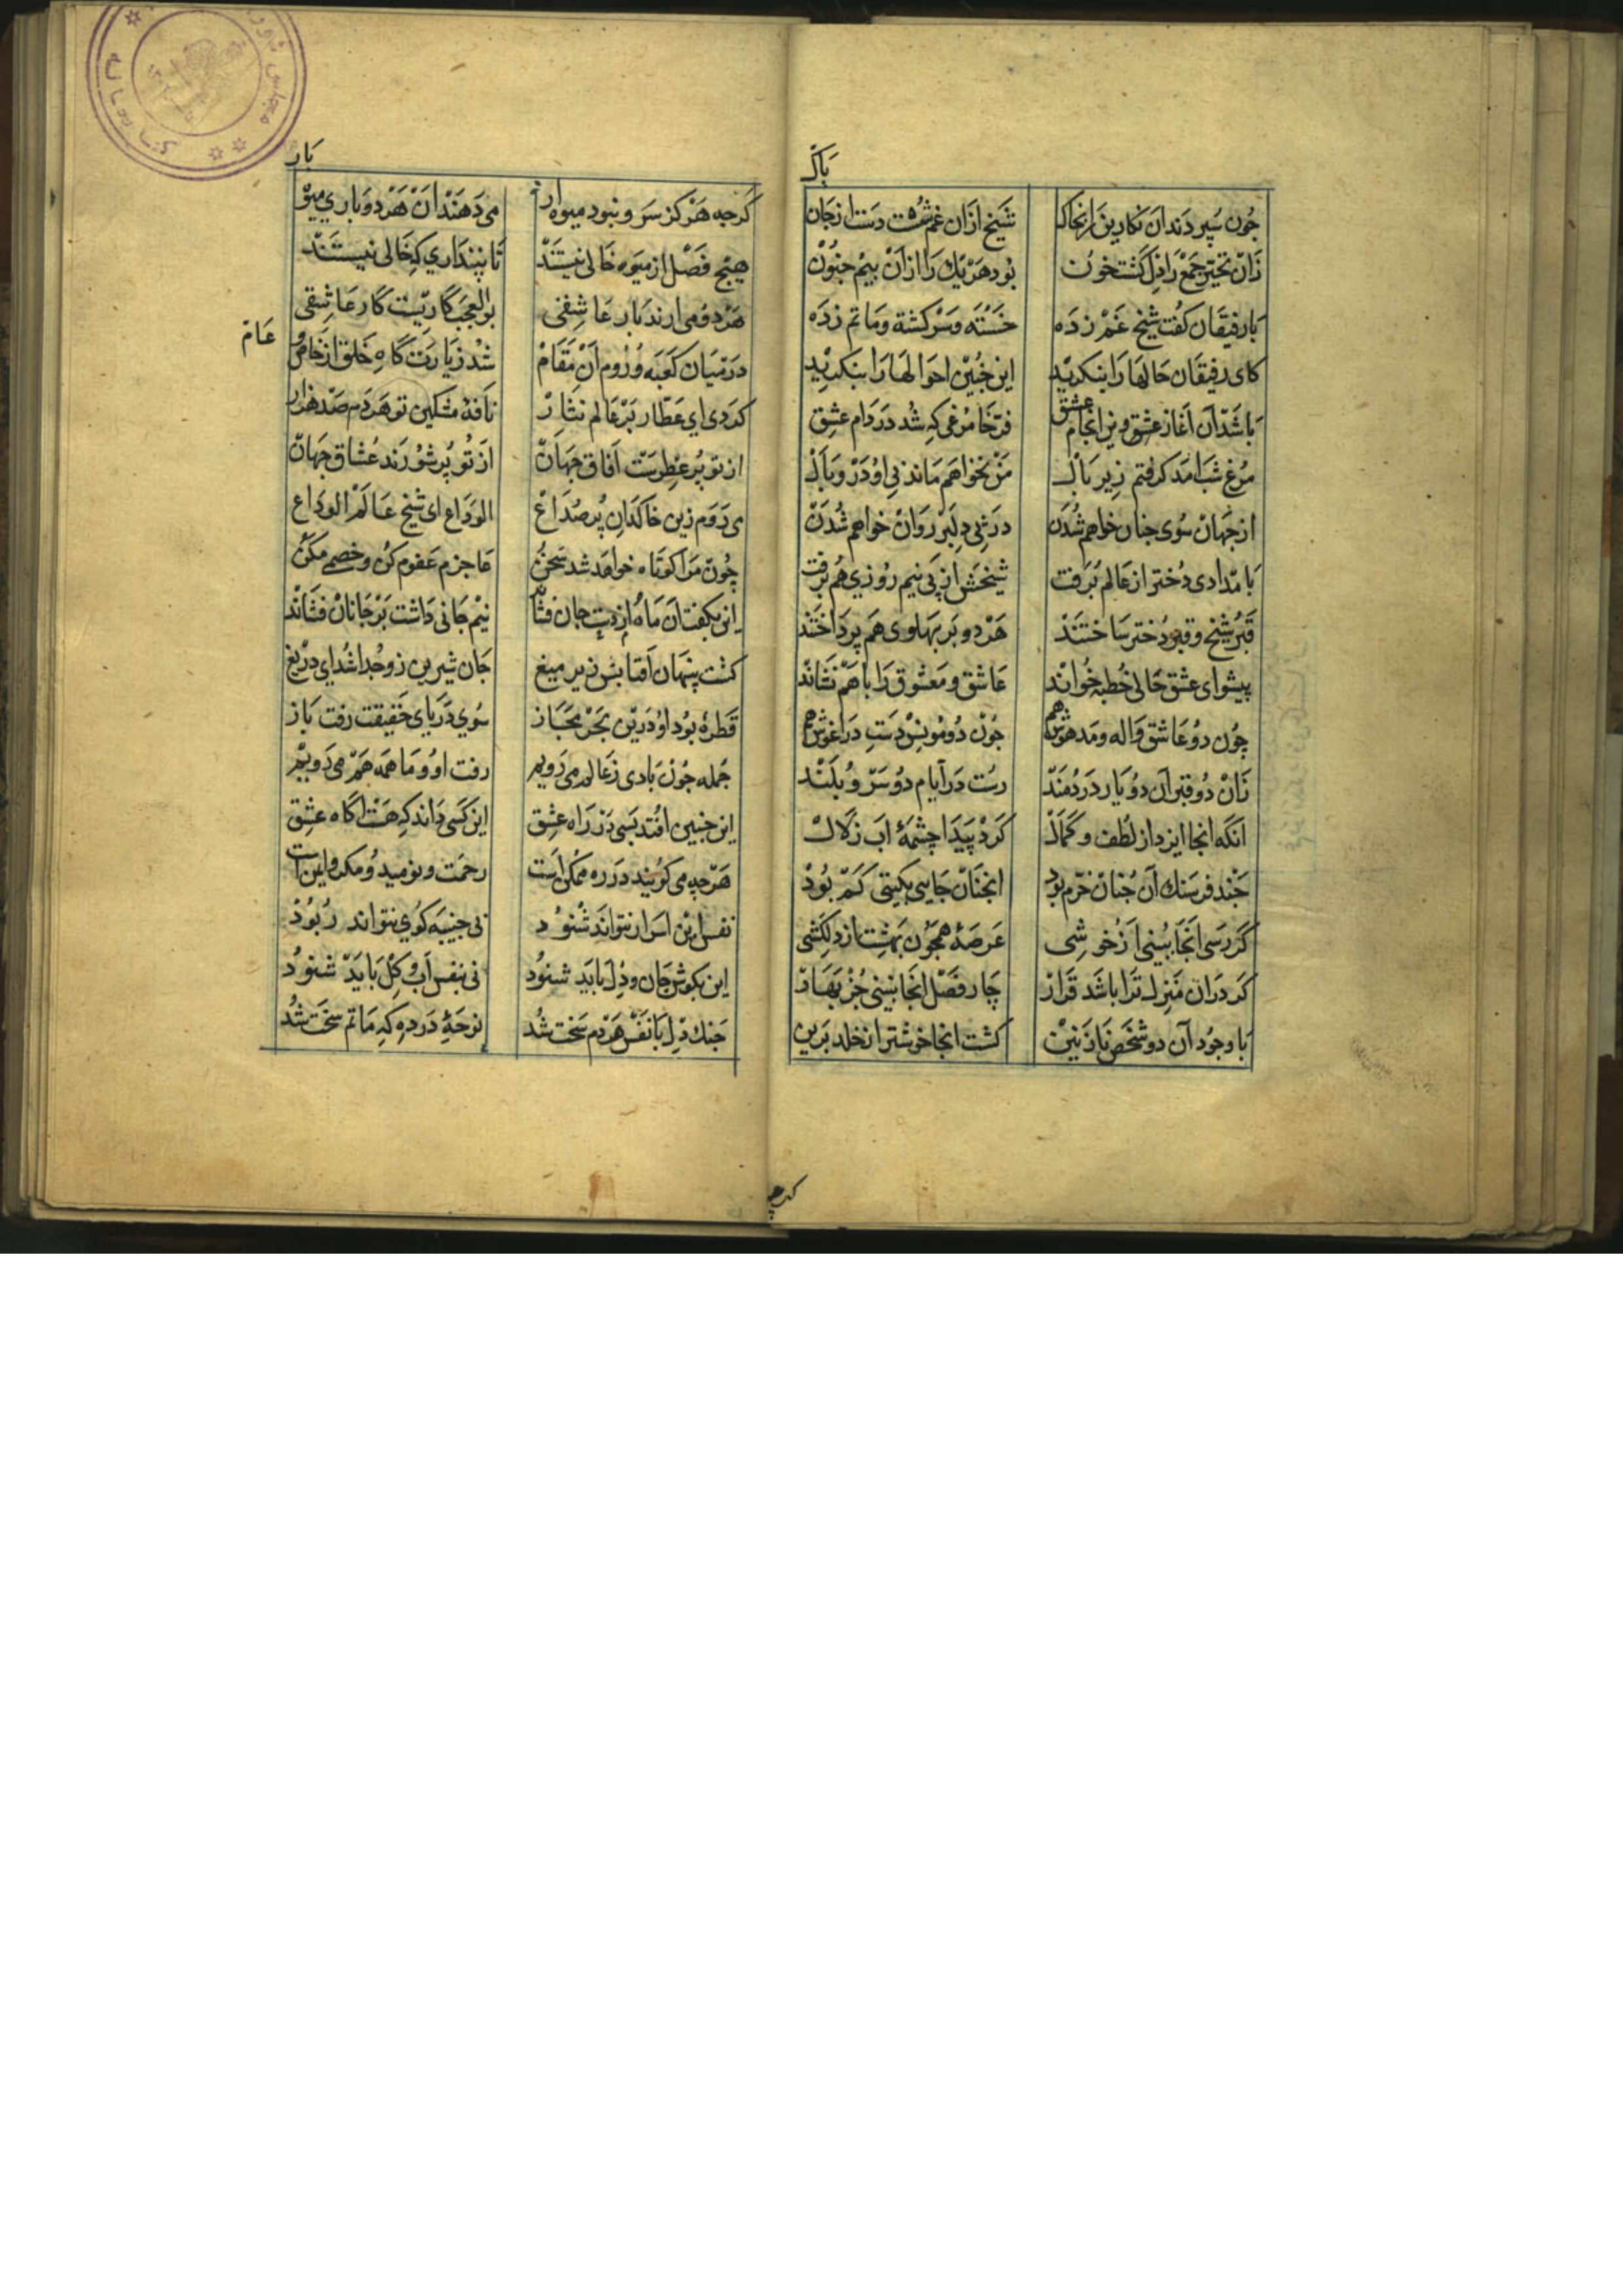 باک
چون سپردند آن نکارین را بخاک شیخ ازان غم شست دست از جان
زان تحیر جمع را دل کشت خون بود هر یک را ازان بیم جنون
با رفیقان کفت شیخ غم زده خسته و سرکشته و ماتم زده
کای رفیقان حالها را بنکرید این چنین احوالها را بنکرید
باشد آن آغاز عشق و این انجام عشق فرخا مرغی که شد در دام عشق
مرغ شب آمد کرفتم زیر بال من نخواهم ماند بی او در وبال
از جهان سوی جنان خواهم شدن در پی دلبر روان خواهم شدن
بامدادی دختر از عالم برفت شیخش از پی نیم روزی هم برفت
قبر شیخ و قبر دختر ساختند هر دو بر پهلوی هم پرداختند
پیشوای عشق حالی خطبه خواند عاشق و معشوق را با هم نشاند
چون دو عاشق واله و مدهوش هم چون دو مونس دست در اغوش هم
زان دو قبر آن دو یار دردمند رست در ایام دو سرو بلند
آنکه انجا ایزد از لطف و کمال کرد پیدا چشمهٔ آب زلال
چند فرسنک آن چنان خرم بود انچنان جایی بکیتی کم بود
کر رسی انجا ببینی از خوشی عرصهٔ همچون بهشت از دلکشی
کر دران منزل ترا باشد قرار چار فصل انجا ببینی جز بهار
با وجود آن دو شخص نازنین کشت انجا خوشتر از خلد برین
کرچه
بار
کرچه هرکز سرو نبود میوه دار می دهند آن هر دو باری میوه
هیچ فصل از میوه خالی نیستند تا بپنداری که خالی نیستند
هر دو می ارند بار عاشقی بوالعجب کاریست کار عاشقی
در میان کعبه و روم آن مقام شد زیارت کاه خلق از خاص و
عام
کردی ای عطار بر عالم نثار نافهٔ مشکین تو هر دم صد هزار
از تو پر عطرست آفاق جهان از تو پر شورند عشاق جهان
می روم زین خاکدان پر صداع الوداع ای شیخ عالم الوداع
چون مرا کوتاه خواهد شد سخن عاجزم عفوم کن و خصمی مکن
این بکفت آن ماه از دست جان فشاند نیم جانی داشت بر جانان فشاند
کشت پنهان آفتابش زیر میغ جان شیرین زو جدا شد ای دریغ
قطرهٔ بود او درین بحر مجاز سوی دریای حقیقت رفت باز
جمله چون بادی ز عالم می رویم رفت او و ما همه هم می رویم
این چنین افتد بسی در راه عشق این کسی داند که هست آکاه عشق
هرچه می کویند در ره ممکن است رحمت و نومید و مکر و ایمن است
نفس این اسرار نتواند شنود بی نصیبه کوی نتواند ربود
این بکوش جان و دل باید شنود نی بنفس آب و کل باید شنود
جنک دل با نفس هر دم سخت شد نوحهٔ در ده که ماتم سخت شد